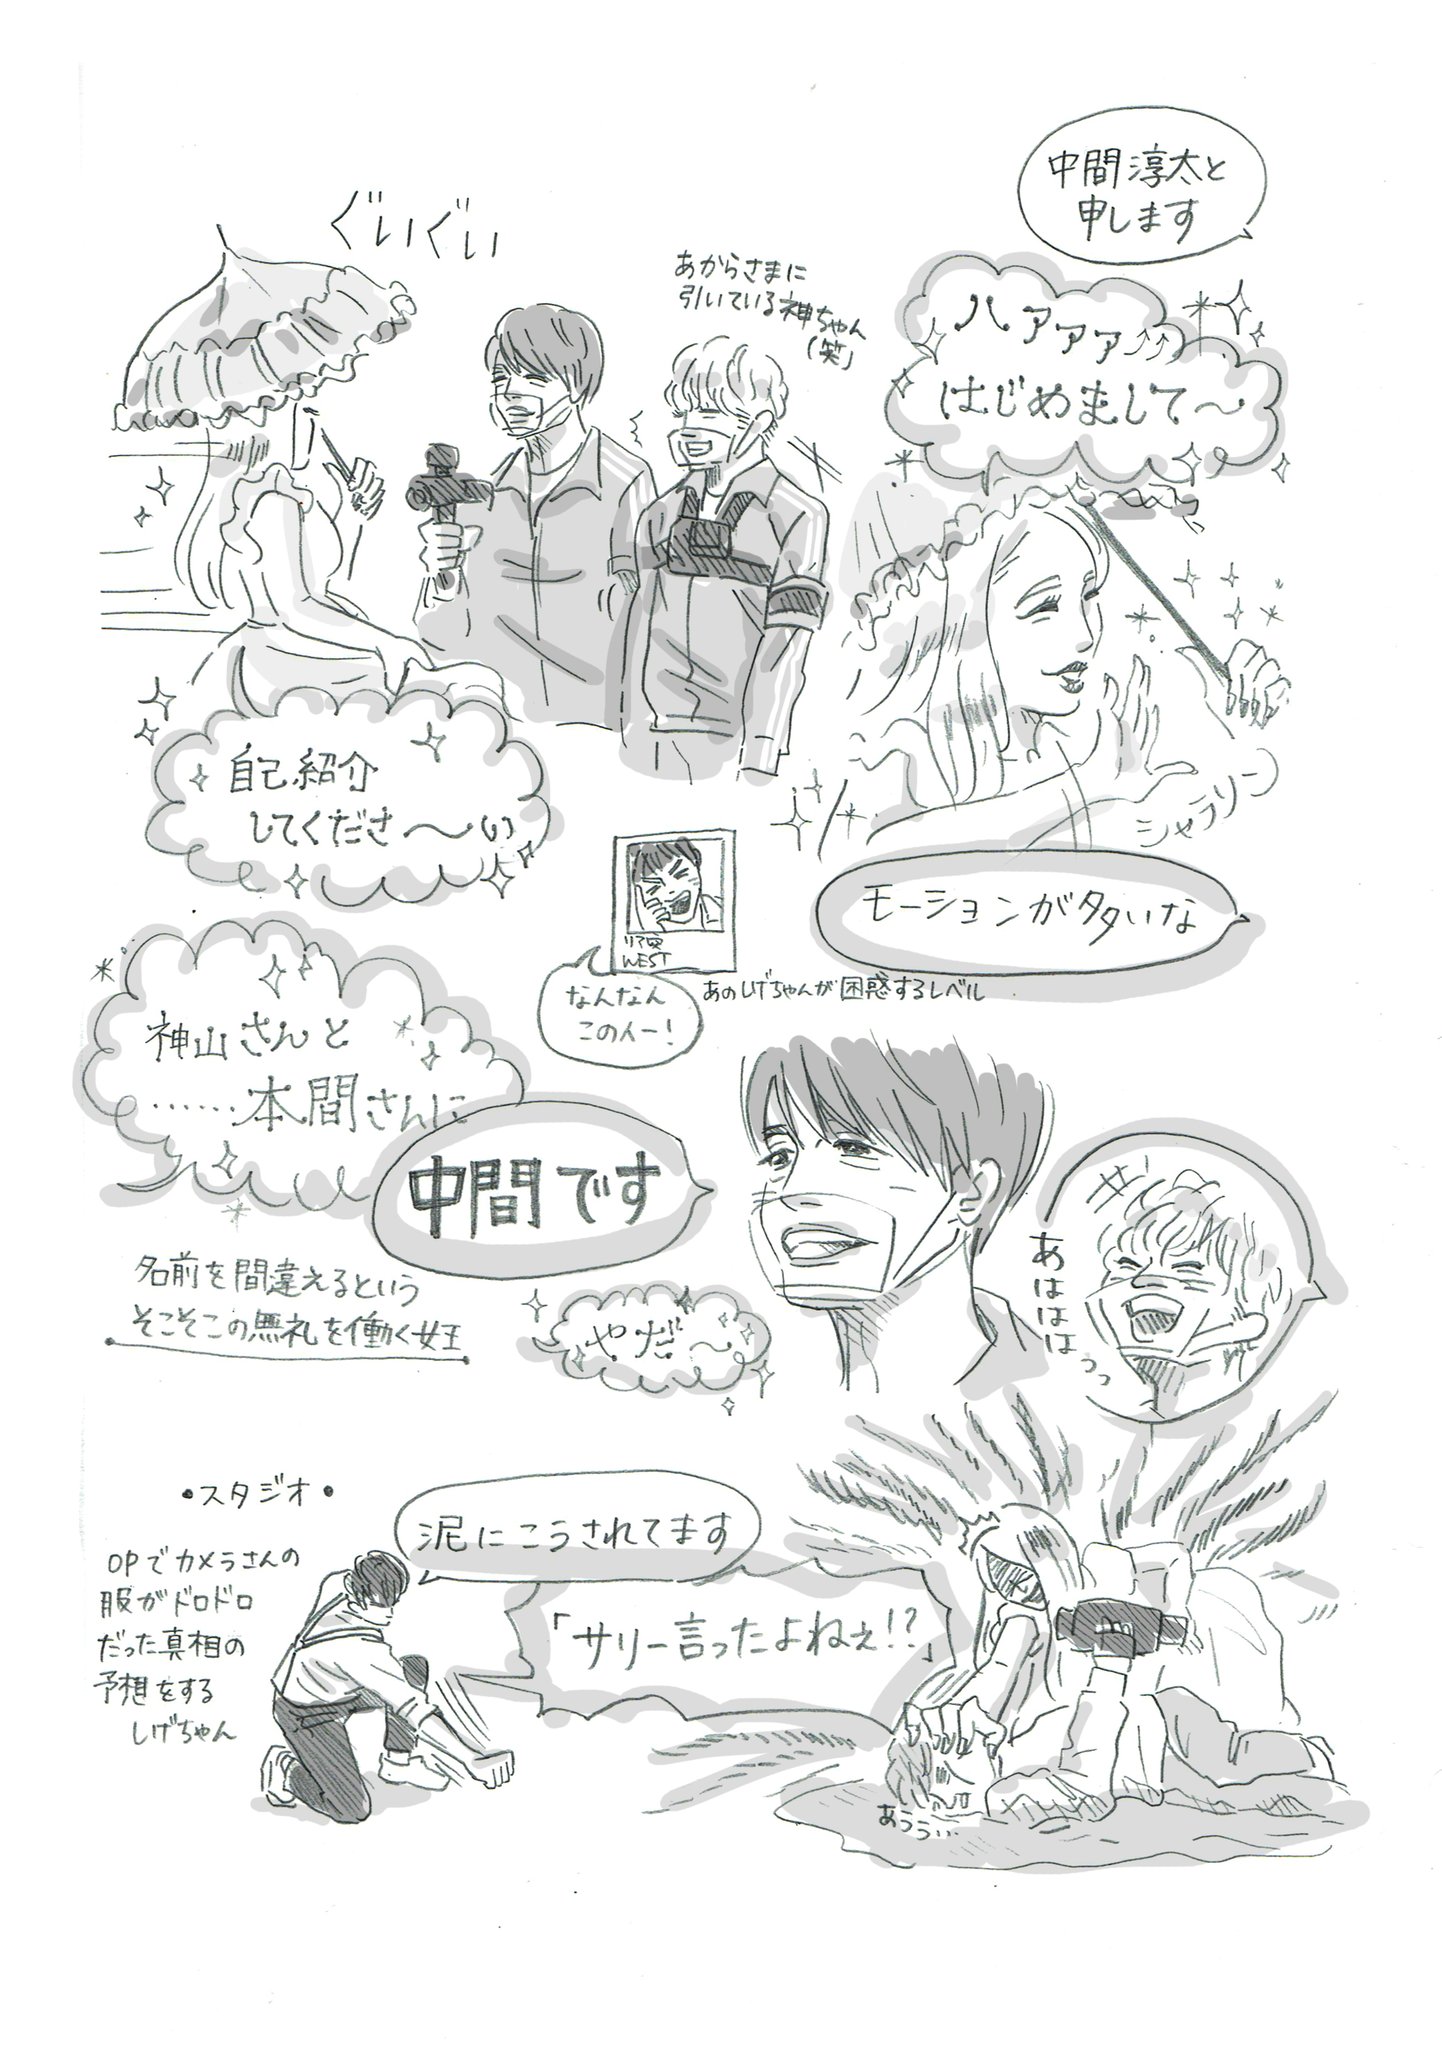 中間淳太と
申します
ぐいぐい
あからさまに
引いている神ちゃん
(笑)
ハァァァ↑↑
はじめまして〜
自己紹介
してくださ〜い
シャラリーン
モーションが多いな
あのしげちゃんが困惑するレベル
WEST
なんなん
この人ー!
神山さんと
……本間さんに
中間です
名前を間違えるという
そこそこの無礼を働く女王
やだ〜
あははは
っっ
•スタジオ•
OPでカメラさんの
服がドロドロ
だった真相の
予想をする
しげちゃん
泥にこうされてます
「サリー言ったよねぇ!?」
あうぅ…